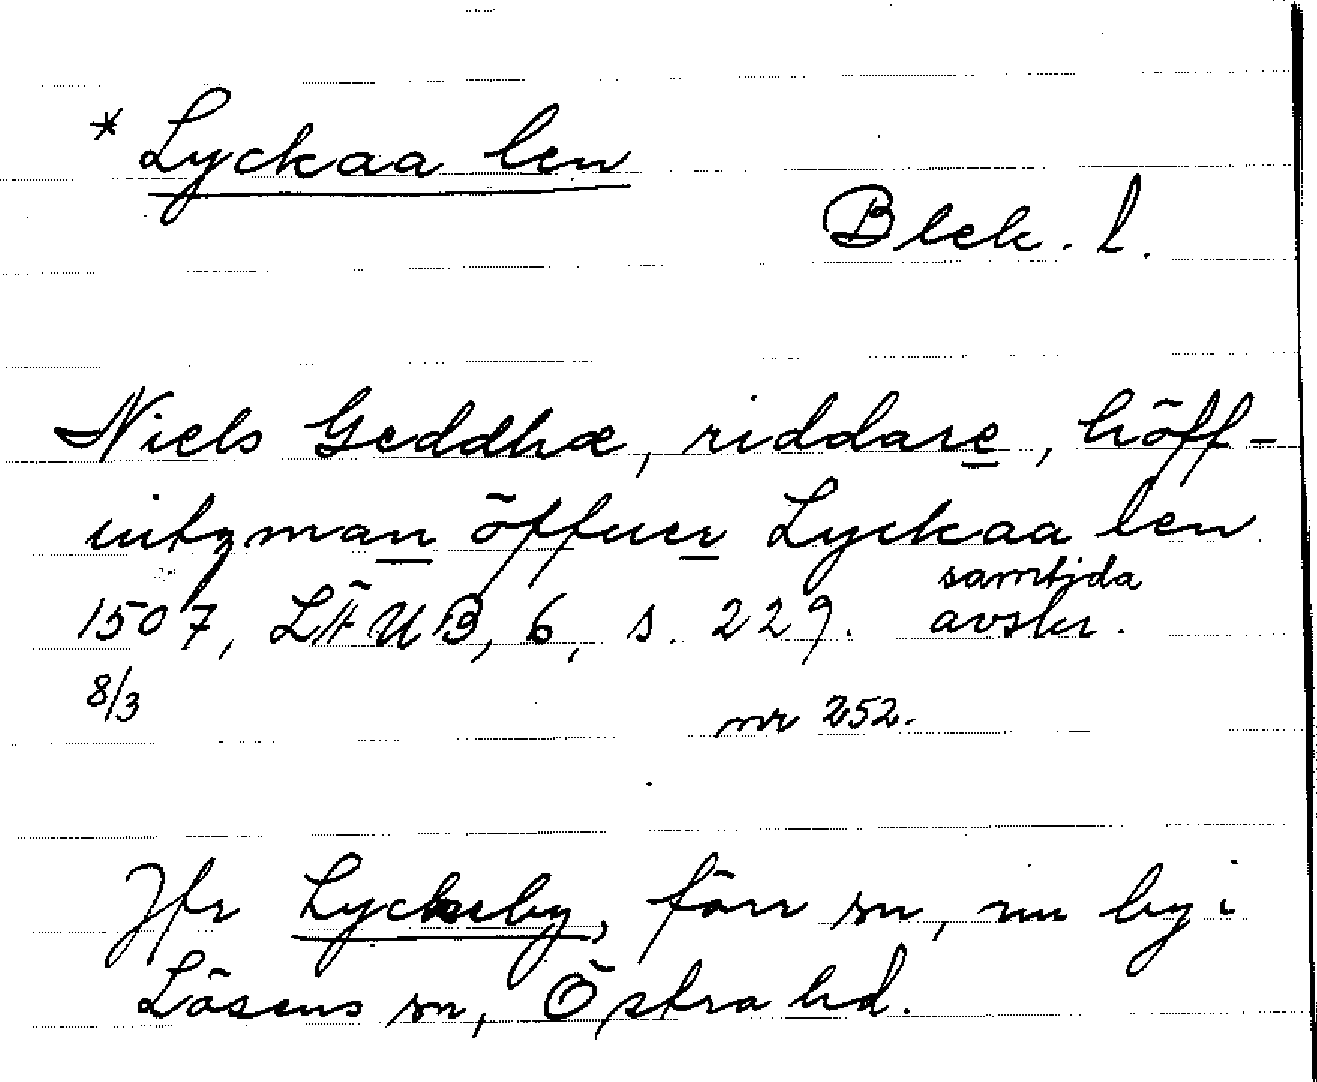 * Lyckaa len
Blek. l.
Niels Geddhæ, riddare, höff-
uitzman öffuer Lyckaa len
samtida
1507, LÄUB, 6, s. 229. avskr.
8/3
nr 252.
Jfr Lyckeby, förr sn, nu by i
Lösens sn, Östra hd.